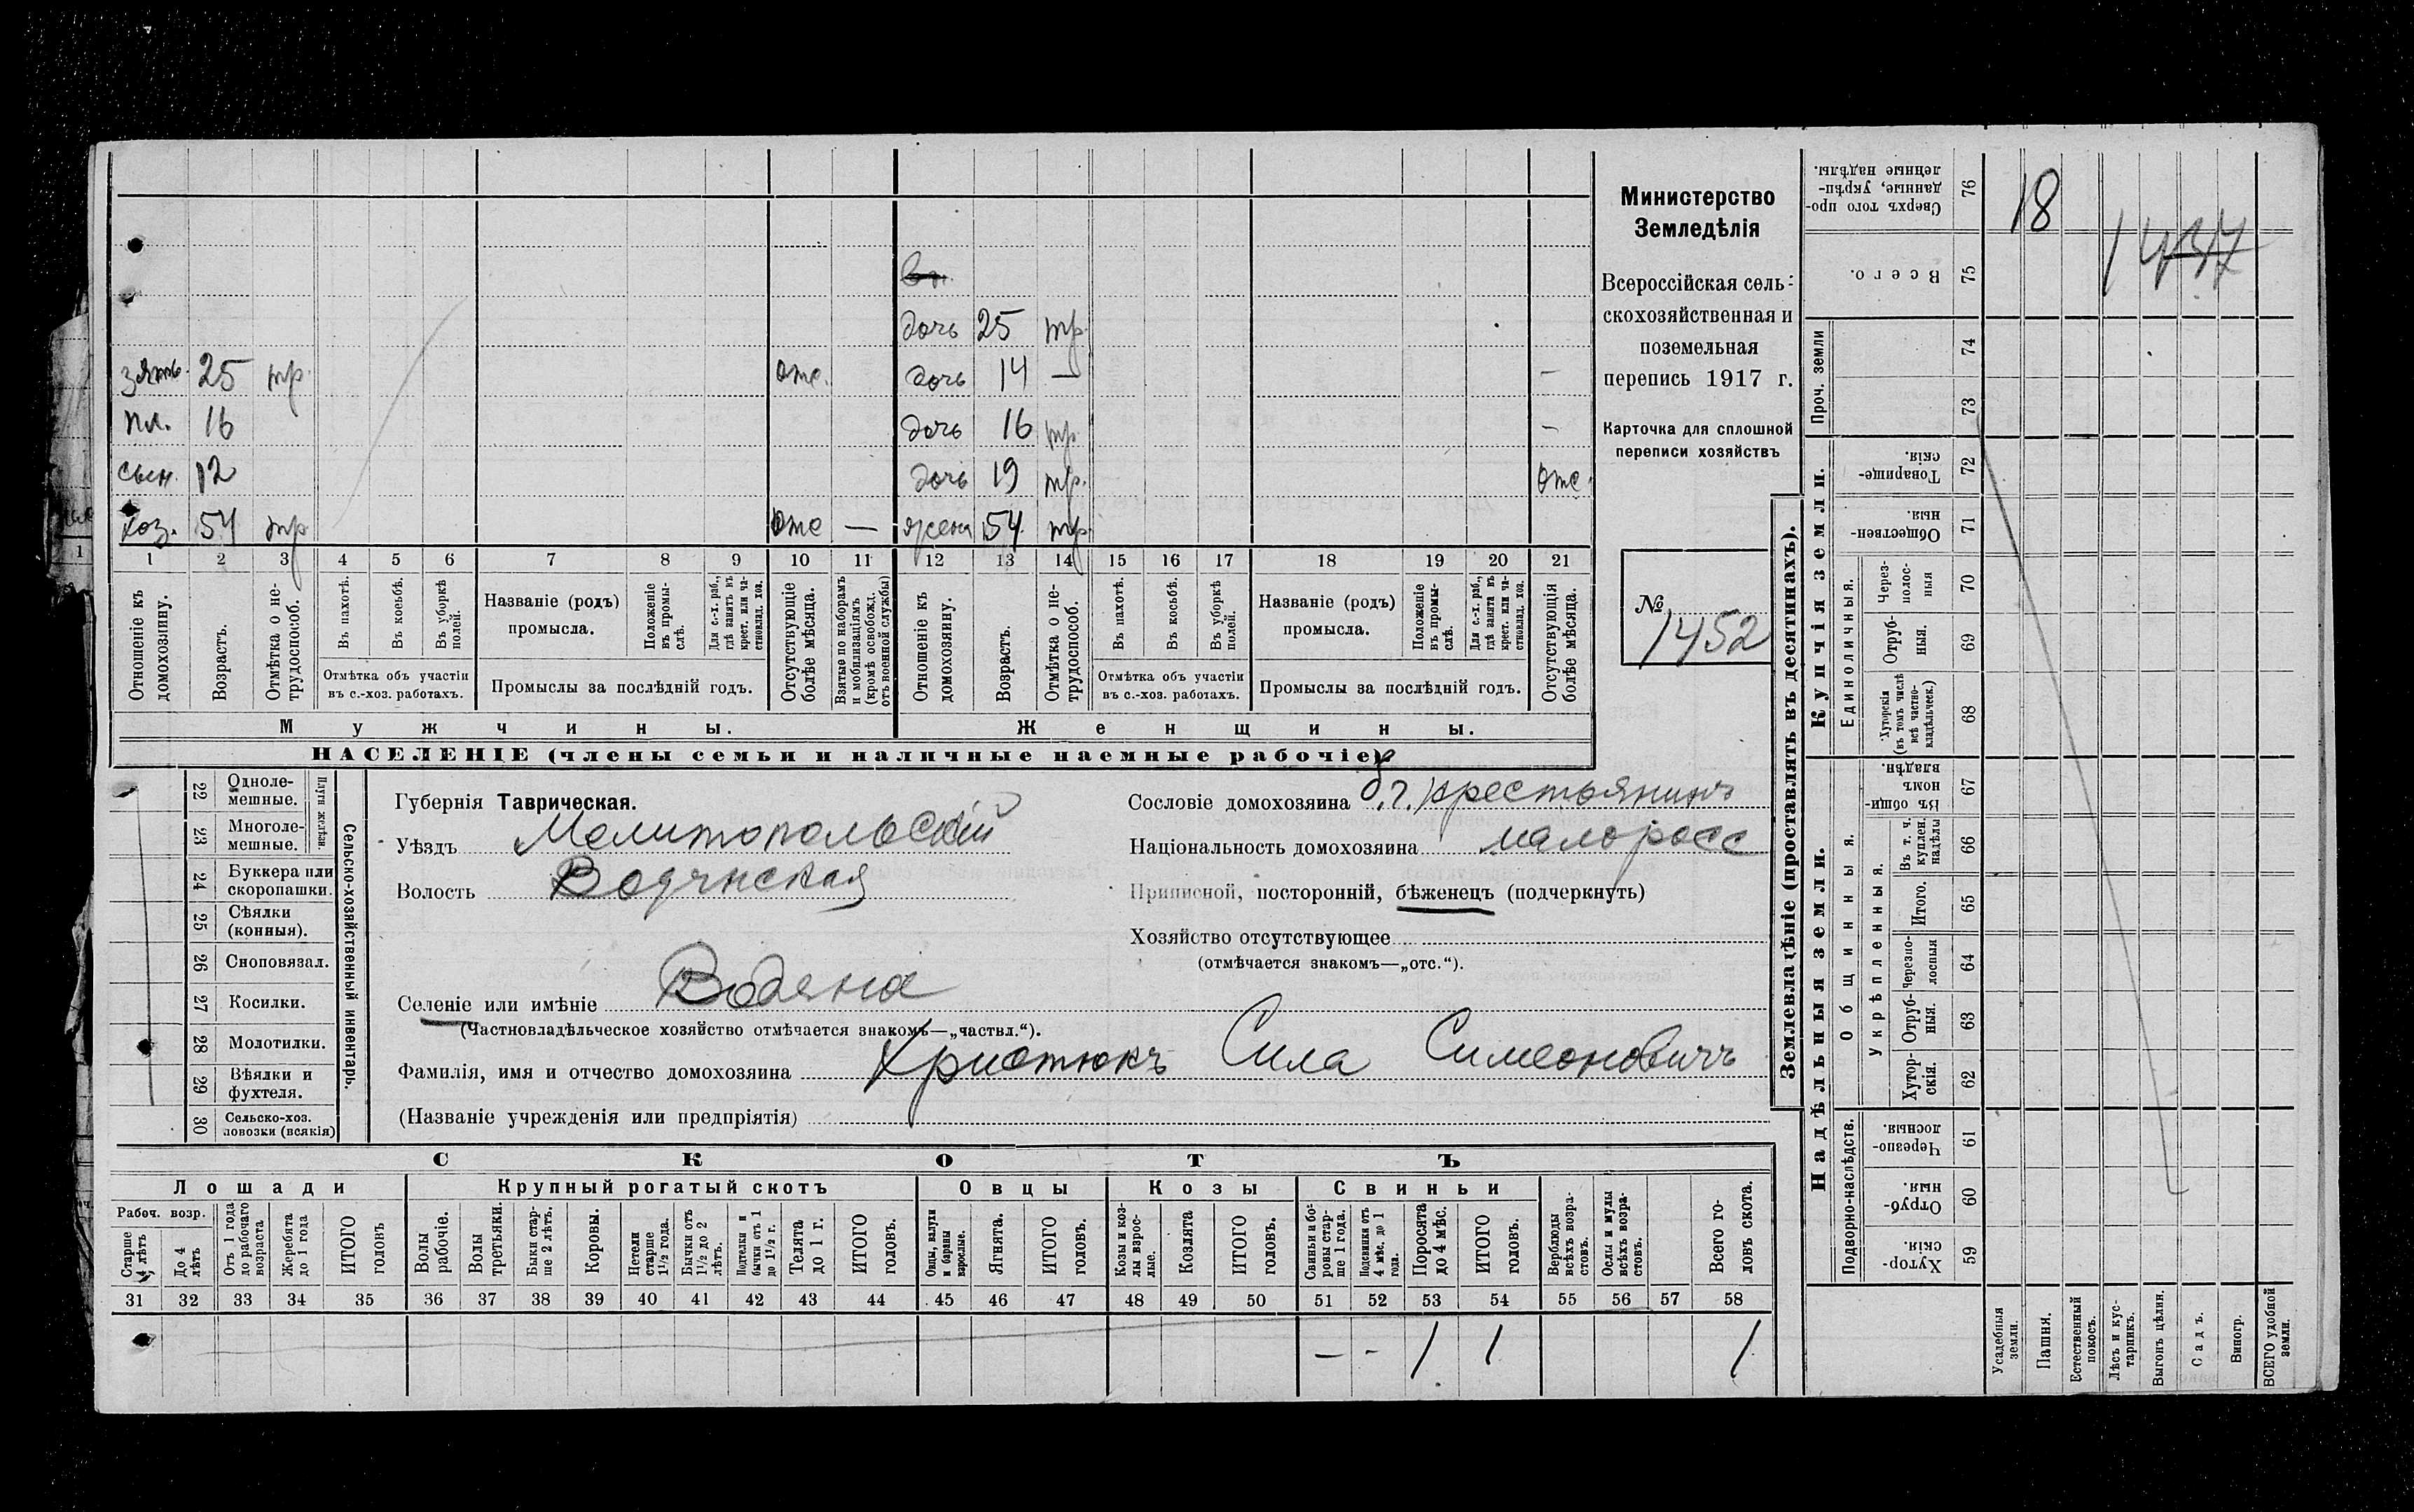 вн.
дочь 25 тр.
зять. 25 тр. отс. дочь 14 — —
пл. 16 дочь 16 тр. —
сын. 12 дочь 19 тр. отс.
хоз. 54 тр отс — жена 54 тр.
1 2 3 4 5 6 7 8 9 10 11 12 13 14 15 16 17 18 19 20 21
Отношеніе къ домохозяину.
Возрастъ.
Отмѣтка о не-трудоспособ.
Въ пахотѣ.
Въ косьбѣ.
Въ уборкѣ полей.
Отмѣтка объ участіи
въ с.-хоз. работахъ.
Названіе (родъ)
промысла.
Положеніе въ промы-слѣ.
Для с.-х. раб., гдѣ занятъ въ крест. или ча-стновлад. хоз.
Промыслы за послѣдній годъ.
Отсутствующіе болѣе мѣсяца.
Взятые по наборамъ и мобилизаціямъ (кромѣ освобожд. отъ военной службы)
Отношеніе къ домохозяину.
Возрастъ.
Отмѣтка о не-трудоспособ.
Въ пахотѣ.
Въ косьбѣ.
Въ уборкѣ полей.
Отмѣтка объ участіи
въ с.-хоз. работахъ.
Названіе (родъ)
промысла.
Положеніе въ промы-слѣ.
Для с.-х. раб., гдѣ занята въ крест. или ча-стновлад. хоз.
Промыслы за послѣдній годъ.
Отсутствующія болѣе мѣсяца.
Мужчины. Женщины.
НАСЕЛЕНІЕ (члены семьи и наличные наемные рабочіе).
Министерство
Земледѣлія
Всероссійская сель-
скохозяйственная и
поземельная
перепись 1917 г.
Карточка для сплошной
переписи хозяйствъ
№
1452
22 Одноле-мешные.
23 Многоле-мешные.
Плуги желѣзн.
24 Буккера или скоропашки.
25 Сѣялки (конныя).
26 Сноповязал.
27 Косилки.
28 Молотилки.
29 Вѣялки и фухтеля.
30 Сельско-хоз. повозки (всякія)
Сельско-хозяйственный инвентарь.
Губернія Таврическая.
Уѣздъ Мелитопольскій
Волость Водянская
Селеніе или имѣніе Водяна
(Частновладѣльческое хозяйство отмѣчается знакомъ—„частвл.“).
Фамилія, имя и отчество домохозяина Христюкъ Сила Симеоновичъ
(Названіе учрежденія или предпріятія)
Сословіе домохозяина крестьянинъ
Національность домохозяина малоросс
Приписной, посторонній, бѣженецъ (подчеркнуть)
Хозяйство отсутствующее
(отмѣчается знакомъ—„отс.“).
СКОТЪ
Лошади Крупный рогатый скотъ Овцы Козы Свиньи
Рабоч. возр.
Старше 4 лѣтъ
До 4 лѣтъ
Отъ 1 года до рабочаго возраста
Жеребята до 1 года
ИТОГО головъ
Волы рабочіе.
Волы третьяки.
Быки стар-ше 2 лѣтъ.
Коровы.
Нетели старше 1½ года.
Бычки отъ 1½ до 2 лѣтъ.
Подтелки и бычки отъ 1 до 1½ г.
Телята до 1 г.
ИТОГО головъ.
Овцы, валухи и бараны взрослые.
Ягнята.
ИТОГО головъ.
Козы и коз-лы взрос-лые.
Козлята
ИТОГО головъ.
Свиньи и бо-ровы стар-ше 1 года.
Подсвинки отъ 4 мѣс. до 1 года.
Поросята до 4 мѣс.
ИТОГО головъ.
Верблюды всѣхъ возра-стовъ.
Ослы и мулы всѣхъ возра-стовъ.
Всего го-ловъ скота.
31 32 33 34 35 36 37 38 39 40 41 42 43 44 45 46 47 48 49 50 51 52 53 54 55 56 57 58
— - 1 1 1
Землевладѣніе (проставлять въ десятинахъ).
Сверхъ того про-данные, укрѣп-ленные надѣлы. 76
18
1437
Всего. 75
Проч. земли
74
73
Купчія земли.
Товарище-скія. 72
Обществен-ныя. 71
Единоличныя.
Через-полос-ныя 70
Отруб-ныя. 69
Хуторскія (въ томъ числѣ всѣ частно-владѣльческ.) 68
Надѣльныя земли.
Общинныя.
Въ общин-номъ владѣн. 67
Укрѣпленныя.
Въ т. ч. куплен. надѣлы 66
Итого. 65
Черезпо-лосныя 64
Отруб-ныя. 63
Хутор-скія. 62
Подворно-наслѣдств.
Черезпо-лосныя. 61
Отруб-ныя. 60
Хутор-скія. 59
Усадебныя земли.
Пашня.
Естественный покосъ.
Лѣсъ и кус-тарникъ.
Выгонъ цѣлин.
Садъ.
Виногр.
ВСЕГО удобной земли.